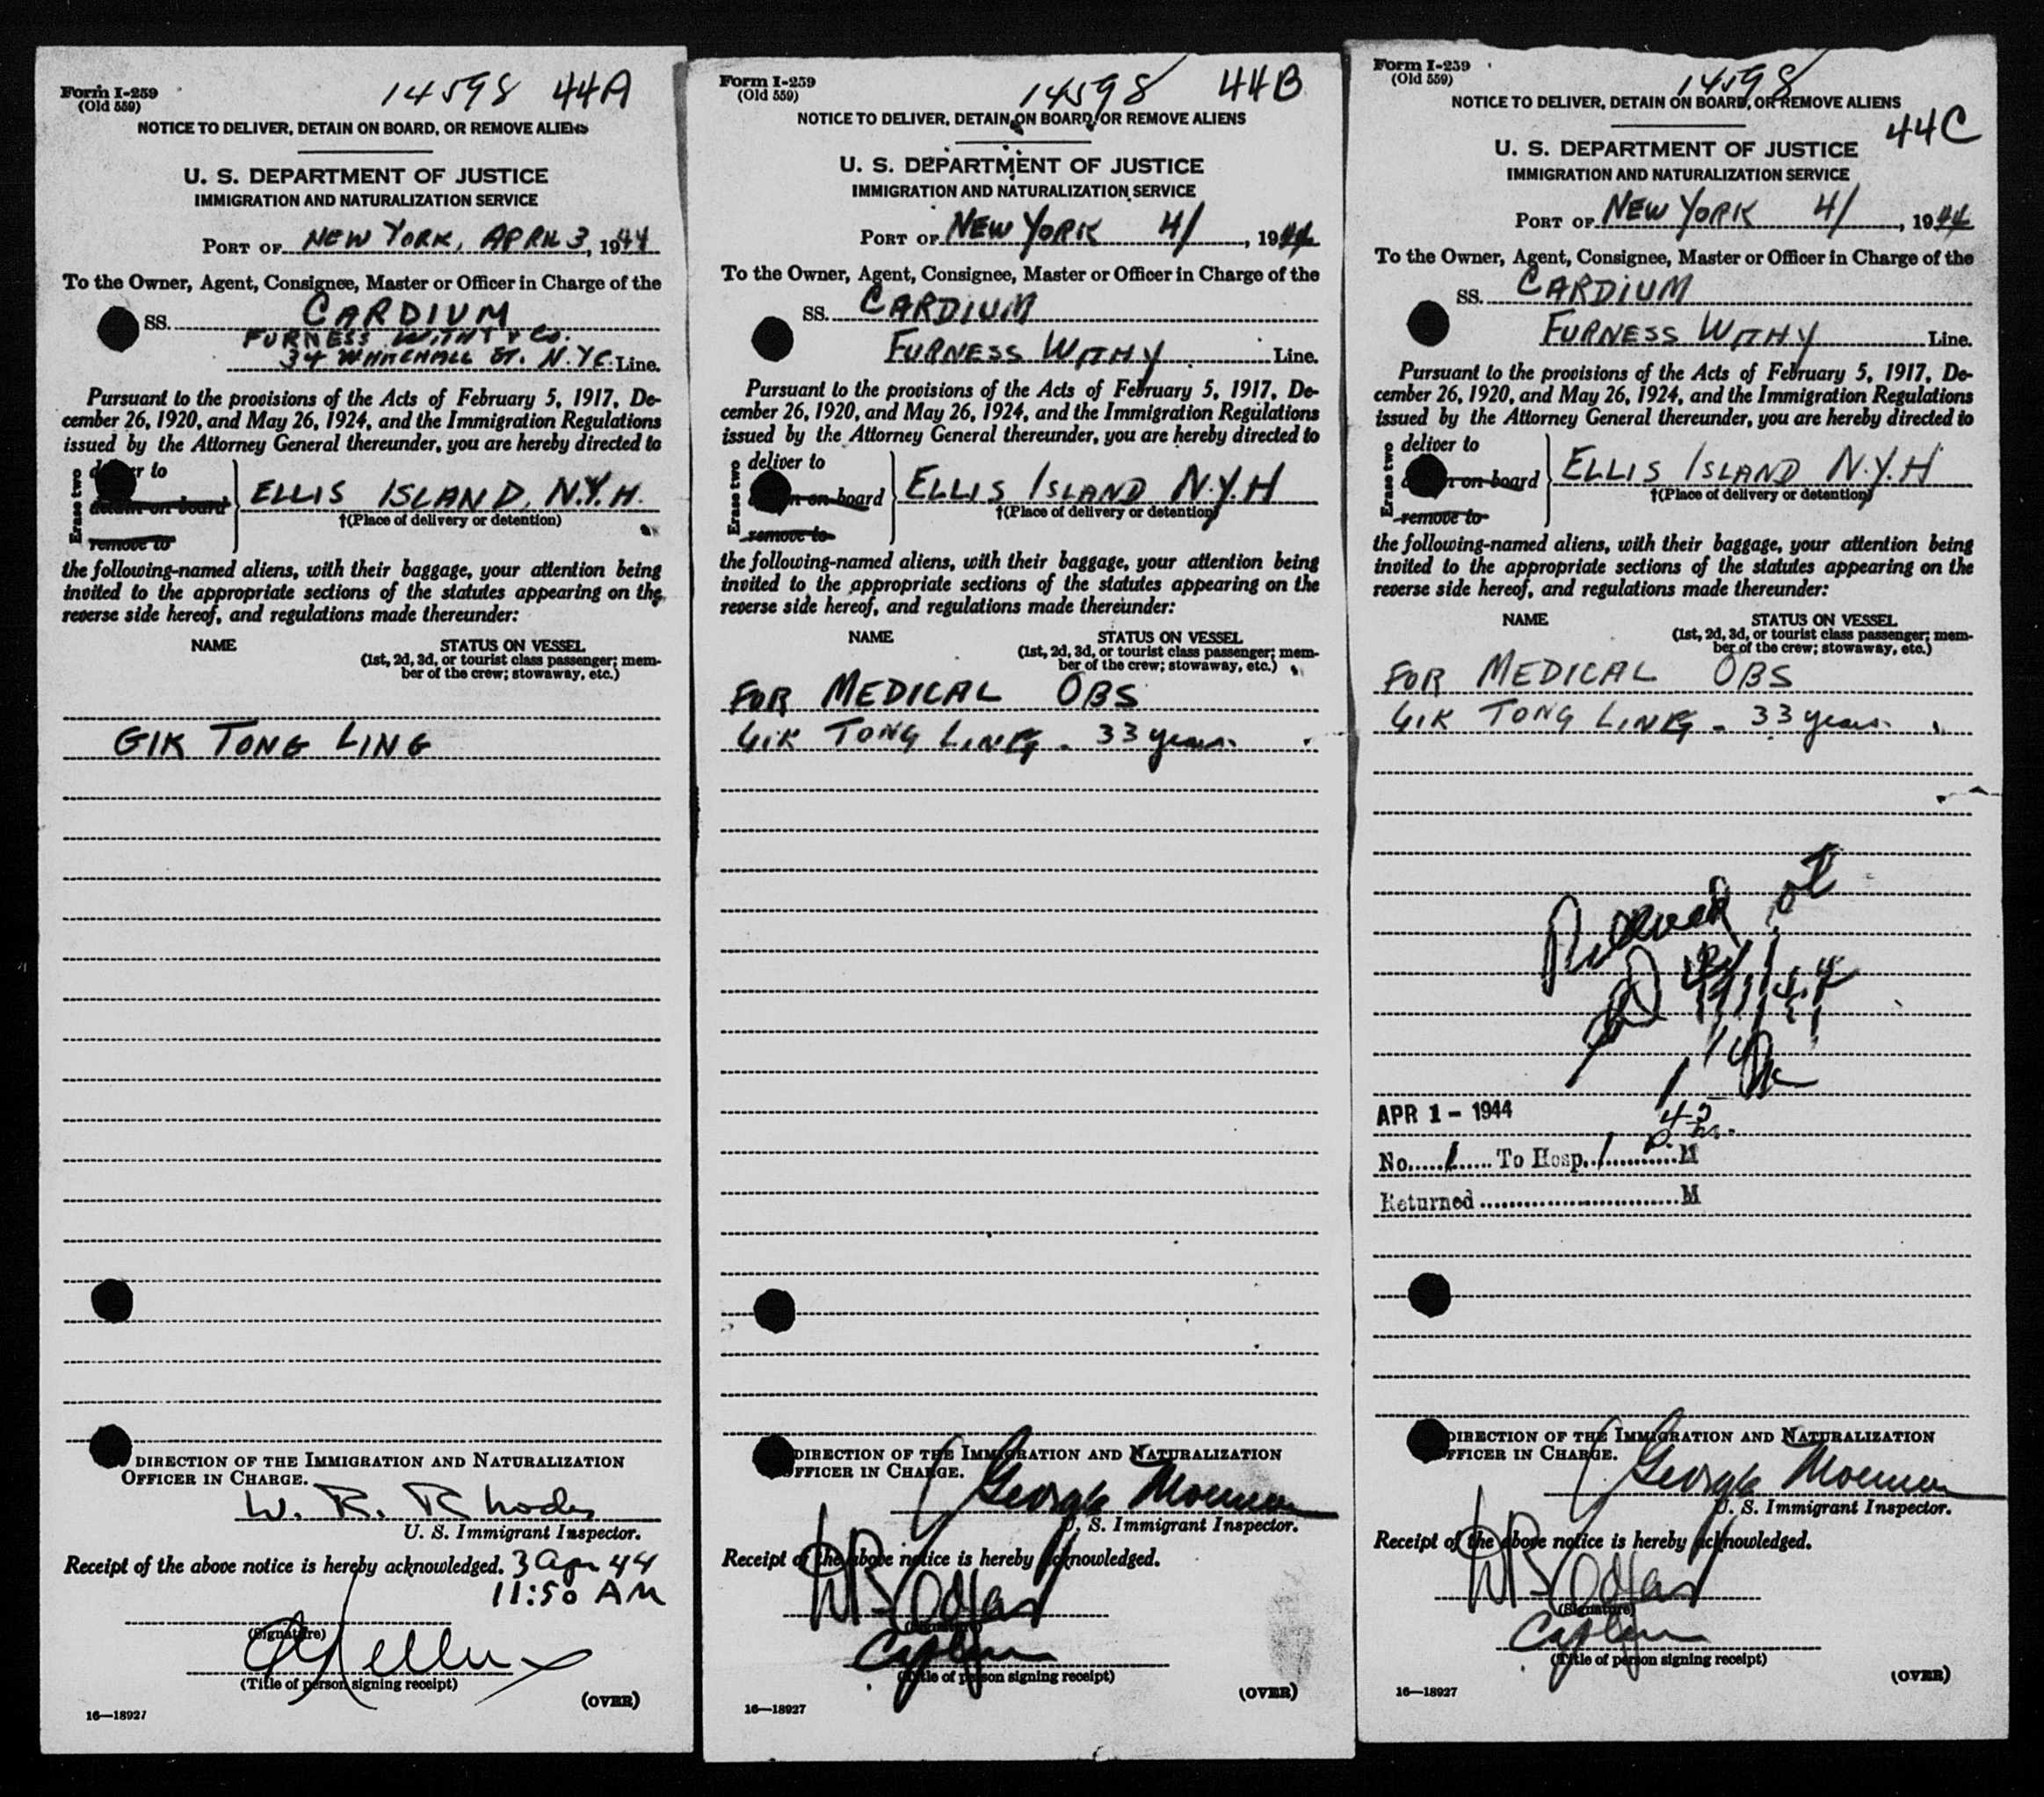 Form I-259
(Old 559)
14598 44A
NOTICE TO DELIVER, DETAIN ON BOARD, OR REMOVE ALIENS
U. S. DEPARTMENT OF JUSTICE
IMMIGRATION AND NATURALIZATION SERVICE
PORT OF NEW YORK, APRIL 3, 1944
To the Owner, Agent, Consignee, Master or Officer in Charge of the
SS. CARDIUM
FURNESS WITHY & CO.
34 WHITEHALL ST. N.Y.C. Line.
Pursuant to the provisions of the Acts of February 5, 1917, De-
cember 26, 1920, and May 26, 1924, and the Immigration Regulations
issued by the Attorney General thereunder, you are hereby directed to
Erase two
deliver to
detain on board
remove to
ELLIS ISLAND, N.Y.H.
†(Place of delivery or detention)
the following-named aliens, with their baggage, your attention being
invited to the appropriate sections of the statutes appearing on the
reverse side hereof, and regulations made thereunder:
NAME STATUS ON VESSEL
(1st, 2d, 3d, or tourist class passenger; mem-
ber of the crew; stowaway, etc.)
GIK TONG LING
DIRECTION OF THE IMMIGRATION AND NATURALIZATION
OFFICER IN CHARGE.
W. R. Rhodes
U. S. Immigrant Inspector.
Receipt of the above notice is hereby acknowledged. 3 Apr 44
11:50 AM
(Signature)
(Title of person signing receipt)
(OVER)
16—18927
Form I-259
(Old 559)
14598 44B
NOTICE TO DELIVER, DETAIN ON BOARD, OR REMOVE ALIENS
U. S. DEPARTMENT OF JUSTICE
IMMIGRATION AND NATURALIZATION SERVICE
PORT OF NEW YORK 4/ , 1944
To the Owner, Agent, Consignee, Master or Officer in Charge of the
SS. CARDIUM
FURNESS WITHY Line.
Pursuant to the provisions of the Acts of February 5, 1917, De-
cember 26, 1920, and May 26, 1924, and the Immigration Regulations
issued by the Attorney General thereunder, you are hereby directed to
Erase two
deliver to
on board
remove to
ELLIS ISLAND N.Y.H
†(Place of delivery or detention)
the following-named aliens, with their baggage, your attention being
invited to the appropriate sections of the statutes appearing on the
reverse side hereof, and regulations made thereunder:
NAME STATUS ON VESSEL
(1st, 2d, 3d, or tourist class passenger; mem-
ber of the crew; stowaway, etc.)
FOR MEDICAL OBS
GIK TONG LING - 33 years.
DIRECTION OF THE IMMIGRATION AND NATURALIZATION
OFFICER IN CHARGE.
George
U. S. Immigrant Inspector.
Receipt of the above notice is hereby acknowledged.
(Signature)
(Title of person signing receipt)
(OVER)
16—18927
Form I-259
(Old 559)
14598
NOTICE TO DELIVER, DETAIN ON BOARD, OR REMOVE ALIENS
44C
U. S. DEPARTMENT OF JUSTICE
IMMIGRATION AND NATURALIZATION SERVICE
PORT OF NEW YORK 4/ , 1944
To the Owner, Agent, Consignee, Master or Officer in Charge of the
SS. CARDIUM
FURNESS WITHY Line.
Pursuant to the provisions of the Acts of February 5, 1917, De-
cember 26, 1920, and May 26, 1924, and the Immigration Regulations
issued by the Attorney General thereunder, you are hereby directed to
Erase two
deliver to
on board
remove to
ELLIS ISLAND N.Y.H
†(Place of delivery or detention)
the following-named aliens, with their baggage, your attention being
invited to the appropriate sections of the statutes appearing on the
reverse side hereof, and regulations made thereunder:
NAME STATUS ON VESSEL
(1st, 2d, 3d, or tourist class passenger; mem-
ber of the crew; stowaway, etc.)
FOR MEDICAL OBS
GIK TONG LING - 33 years.
APR 1 - 1944
No. 1 To Hosp. M
Returned M
DIRECTION OF THE IMMIGRATION AND NATURALIZATION
OFFICER IN CHARGE.
George
U. S. Immigrant Inspector.
Receipt of the above notice is hereby acknowledged.
(Signature)
(Title of person signing receipt)
(OVER)
16—18927